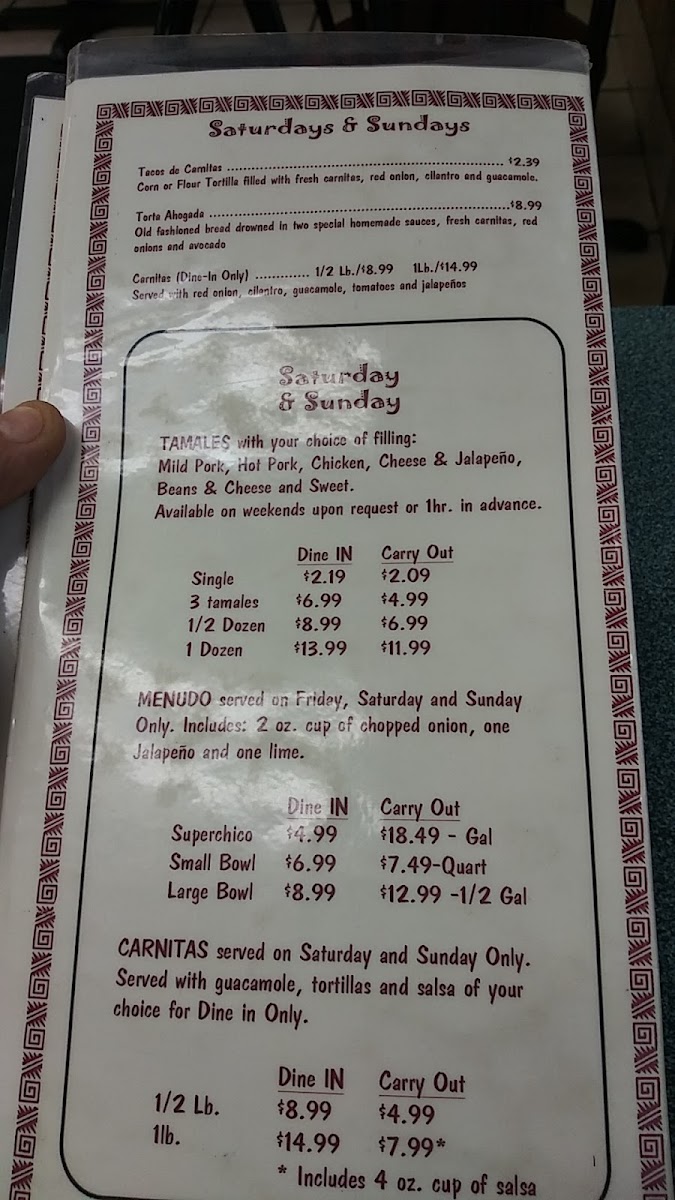 Saturdays & Sundays
Tacos de Carnitas ........................................................................ $2.39
Corn or Flour Tortilla filled with fresh carnitas, red onion, cilantro and guacamole.
Torta Ahogada ............................................................................$8.99
Old fashioned bread drowned in two special homemade sauces, fresh carnitas, red
onions and avocado
Carnitas (Dine-In Only) ............. 1/2 Lb./$8.99 1Lb./$14.99
Served with red onion, cilantro, guacamole, tomatoes and jalapeños
Saturday
& Sunday
TAMALES with your choice of filling:
Mild Pork, Hot Pork, Chicken, Cheese & Jalapeño,
Beans & Cheese and Sweet.
Available on weekends upon request or 1hr. in advance.
Dine IN Carry Out
Single $2.19 $2.09
3 tamales $6.99 $4.99
1/2 Dozen $8.99 $6.99
1 Dozen $13.99 $11.99
MENUDO served on Friday, Saturday and Sunday
Only. Includes: 2 oz. cup of chopped onion, one
Jalapeño and one lime.
Dine IN Carry Out
Superchico $4.99 $18.49 - Gal
Small Bowl $6.99 $7.49-Quart
Large Bowl $8.99 $12.99 -1/2 Gal
CARNITAS served on Saturday and Sunday Only.
Served with guacamole, tortillas and salsa of your
choice for Dine in Only.
Dine IN Carry Out
1/2 Lb. $8.99 $4.99
1lb. $14.99 $7.99*
* Includes 4 oz. cup of salsa